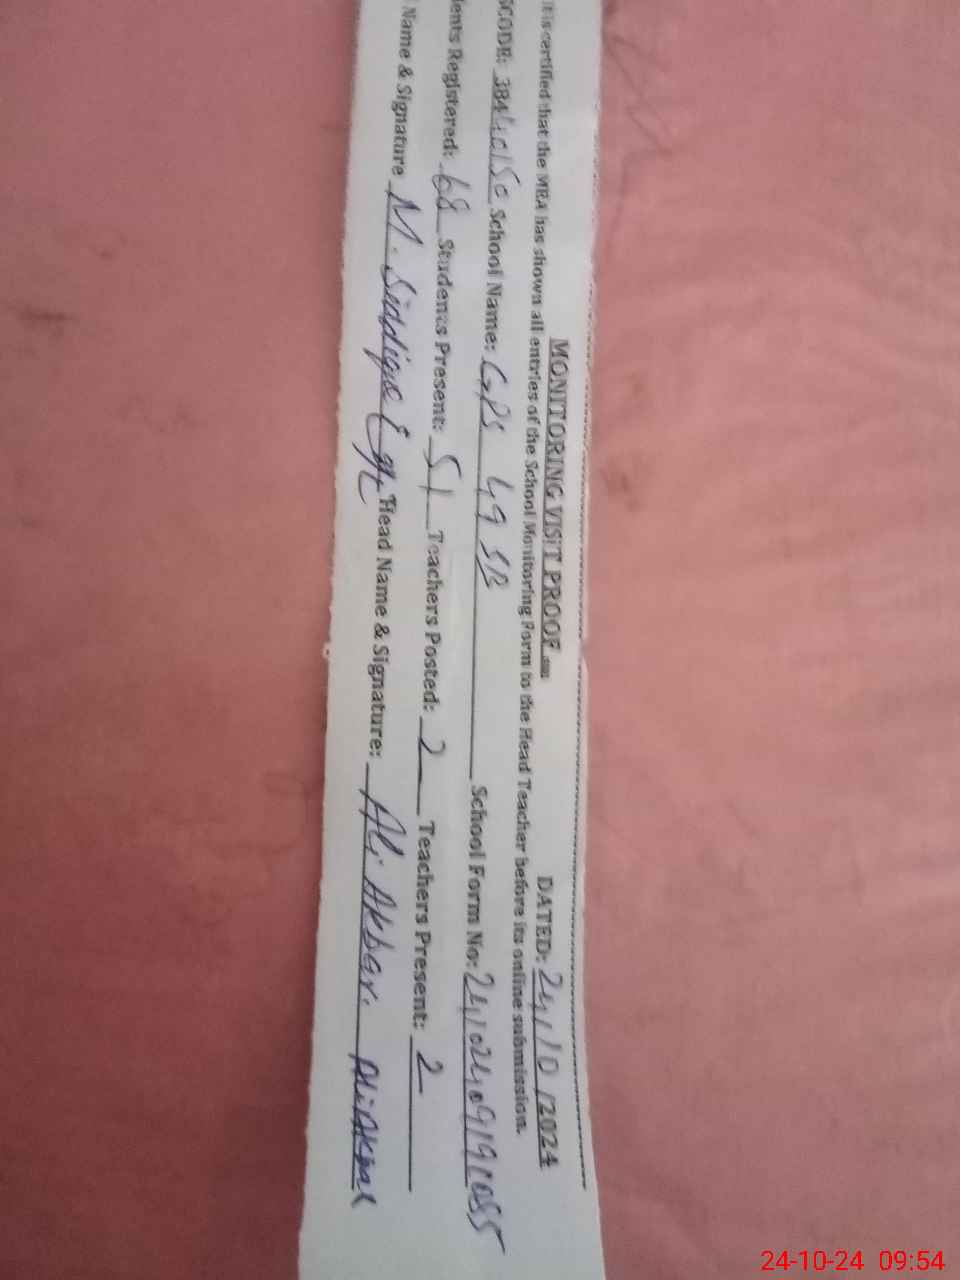 MONITORING VISIT PROOF DATED: 24/10/2024
It is certified that the MEA has shown all entries of the School Monitoring Form to the Head Teacher before its online submission.
SCODE: 38440150 School Name: GPS 49 SB School Form No:
dents Registered: 68 Students Present: 51 Teachers Posted: 2 Teachers Present: 2
Name & Signature M. Siddique Head Name & Signature: Ali Akbar. Ali Akbar
24-10-24 09:54